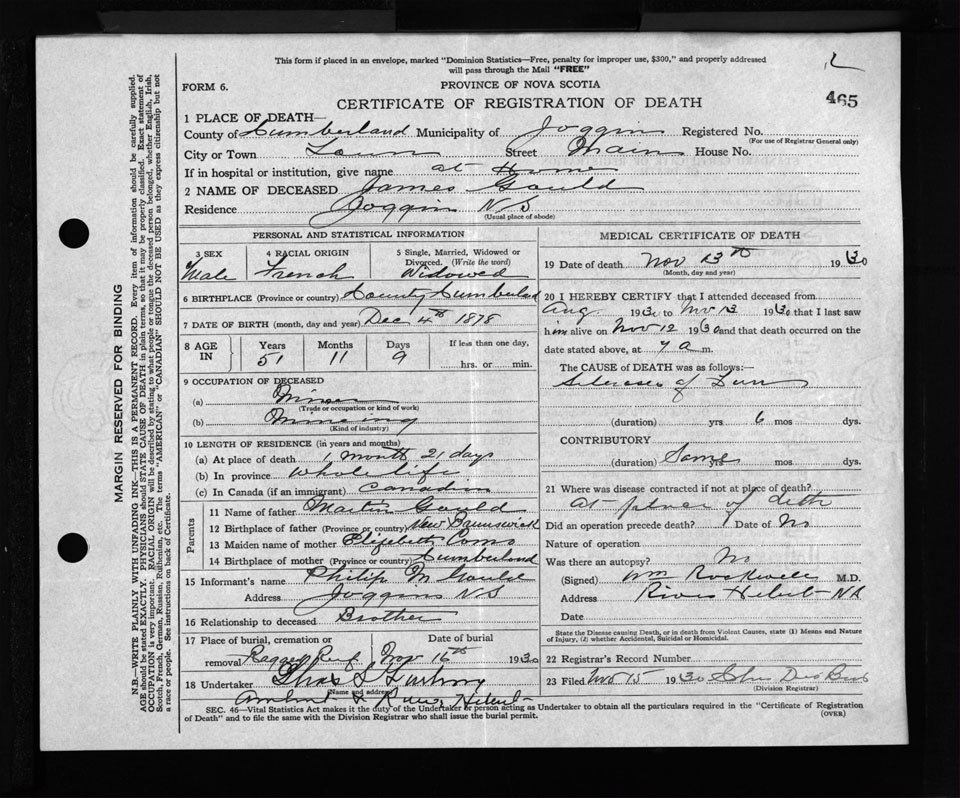 This form if placed in an envelope, marked "Dominion Statistics—Free, penalty for improper use, $300," and properly addressed
will pass through the Mail "FREE"
FORM 6.
PROVINCE OF NOVA SCOTIA
465
CERTIFICATE OF REGISTRATION OF DEATH
1 PLACE OF DEATH—
County of Cumberland Municipality of Joggin Registered No.
(For use of Registrar General only)
City or Town Town Street Main House No.
If in hospital or institution, give name at Home
2 NAME OF DECEASED James Gould
Residence Joggin NS
(Usual place of abode)
PERSONAL AND STATISTICAL INFORMATION
3 SEX 4 RACIAL ORIGIN 5 Single, Married, Widowed or Divorced. (Write the word)
Male French Widowed
6 BIRTHPLACE (Province or country) County Cumberland
7 DATE OF BIRTH (month, day and year) Dec 4th 1878
8 AGE IN Years Months Days If less than one day,
51 11 9 hrs. or min.
9 OCCUPATION OF DECEASED
(a) Miner
(Trade or occupation or kind of work)
(b) Mineing
(Kind of industry)
10 LENGTH OF RESIDENCE (in years and months)
(a) At place of death 1 month 21 days
(b) In province whole life
(c) In Canada (if an immigrant) Canadian
Parents
11 Name of father Martin Gould
12 Birthplace of father (Province or country) New Brunswick
13 Maiden name of mother Elizebeth
14 Birthplace of mother (Province or country) Cumberland
15 Informant's name Philip M
Address Joggins NS
16 Relationship to deceased Brother
17 Place of burial, cremation or removal Date of burial
Ragged Reef Nov 16th 1930
18 Undertaker
(Name and address)
River Hebert
MEDICAL CERTIFICATE OF DEATH
19 Date of death Nov 13th 1930
(Month, day and year)
20 I HEREBY CERTIFY that I attended deceased from
Aug. 1930 to Nov 13 1930 that I last saw
him alive on Nov 12 1930 and that death occurred on the
date stated above, at 7 a m.
The CAUSE of DEATH was as follows:—
of
(duration) yrs 6 mos dys.
CONTRIBUTORY
(duration) Same yrs mos dys.
21 Where was disease contracted if not at place of death?
at place of deth
Did an operation precede death? Date of No
Nature of operation
Was there an autopsy? No
(Signed) Wm Rockwell M.D.
Address River Hebert NS
Date
State the Disease causing Death, or in death from Violent Causes, state (1) Means and Nature
of Injury, (2) whether Accidental, Suicidal or Homicidal.
22 Registrar's Record Number
23 Filed Nov 15 1930
(Division Registrar)
SEC. 46—Vital Statistics Act makes it the duty of the Undertaker or person acting as Undertaker to obtain all the particulars required in the "Certificate of Registration
of Death" and to file the same with the Division Registrar who shall issue the burial permit.
(OVER)
MARGIN RESERVED FOR BINDING
N.B.—WRITE PLAINLY WITH UNFADING INK—THIS IS A PERMANENT RECORD. Every item of information should be carefully supplied.
AGE should be stated EXACTLY. PHYSICIANS should STATE CAUSE OF DEATH in plain terms, so that it may be properly classified. Exact statement of
OCCUPATION is very important. RACIAL ORIGIN will be described by stating to what people or tongue the deceased person belonged, whether English, Irish,
Scotch, French, German, Russian, Ruthenian, etc. The terms "AMERICAN" or "CANADIAN" SHOULD NOT BE USED as they express citizenship but not
a race or people. See instructions on back of Certificate.